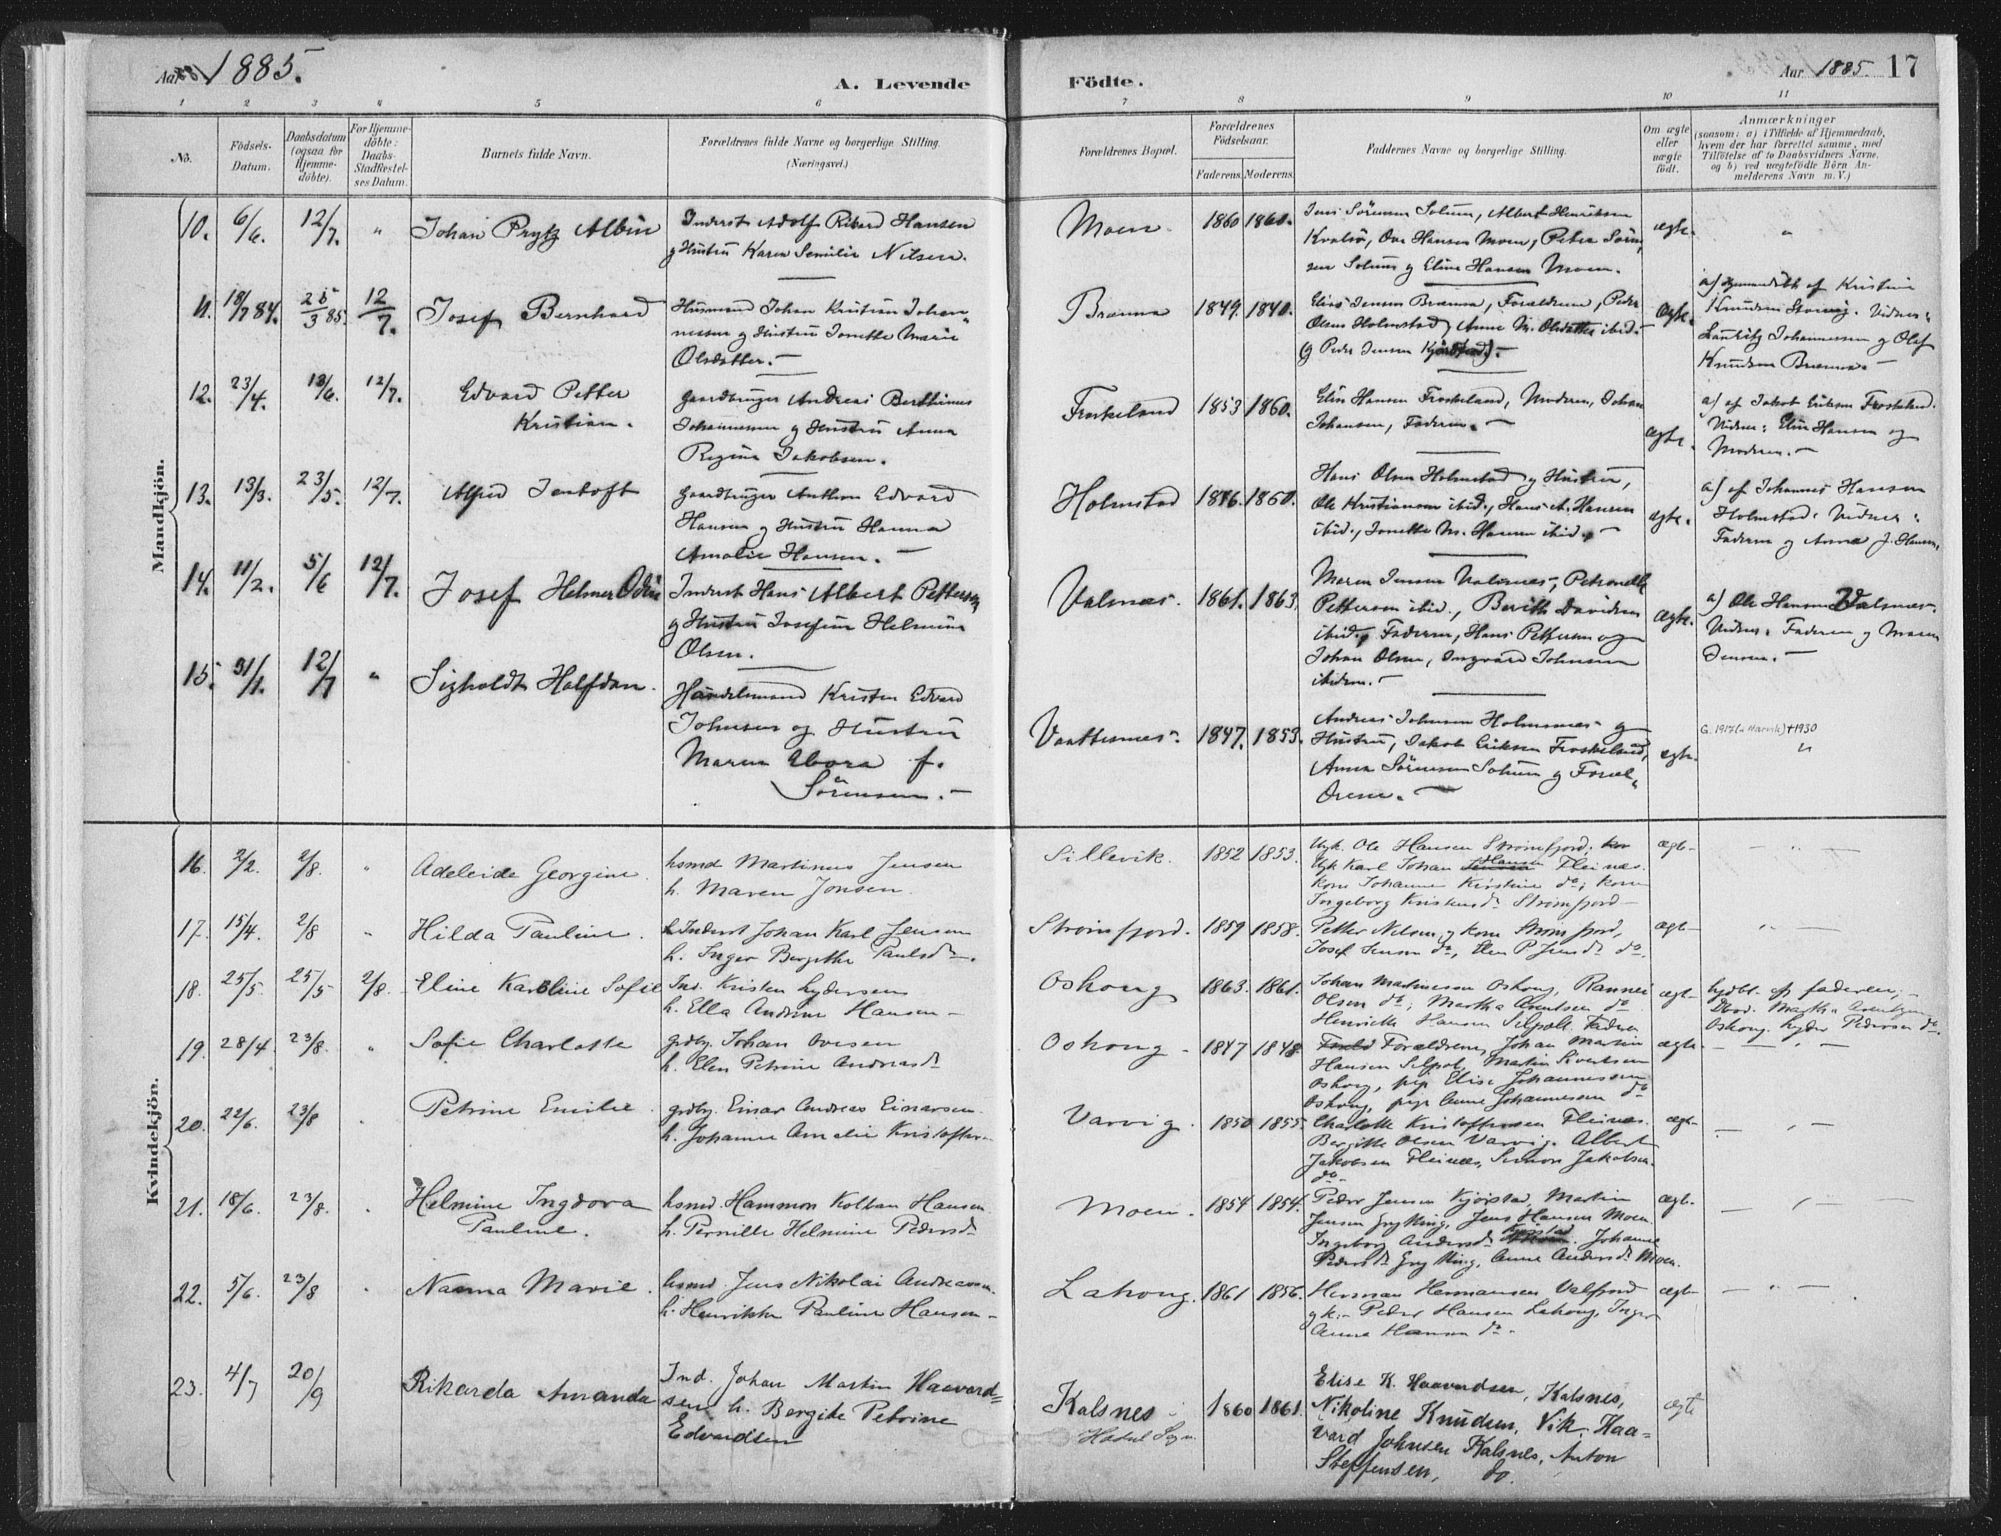 Aar 1885.
A. Levende
Födte.
Aar 1885. 17
1 2 3 4 5 6 7 8 9 10 11
No.
Födsels-
Datum.
Daabsdatum
(ogsaa for
Hjemme-
döbte).
For Hjemme-
döbte:
Daabs-
Stadfestel-
ses Datum.
Barnets fulde Navn.
Forældrenes fulde Navne og borgerlige Stilling.
(Næringsvei.)
Forældrenes Bopæl.
Forældrenes
Födselsaar.
Faderens. Moderens.
Faddernes Navne og borgerlige Stilling.
Om ægte
eller
uægte
födt.
Anmærkninger
(saasom: a) i Tilfælde af Hjemmedaab,
hvem der har forrettet samme, med
Tilföielse af to Daabsvidners Navne,
og b) ved uægtefödte Börn An-
melderens Navn m. V.)
Mandkjön.
10. 6/6. 12/7. " Johan Prytz Albin
Inderst Adolf Rikard Hansen
g Hustru Karen Semilie Nilsen.
Moen. 1860 1860.
Jens Sörensen Solum, Albert Henriksen
Kvalsö, Ove Hansen Moen, Peter Sören
sen Solum g Eline Hansen Moen.
ægte. "
11. 18/7 84. 25/3 85. 12/7. Josef Bernhard
Husmand Johan Kristian Johan-
nessen og Hustru Jonette Marie
Olsdatter.
Brænna 1849. 1840.
Elias Jensen Brænna, Forældrene, Peder
Olsen Holmstad, Anne M. Olsdatter ibid.
g Peder Jensen
ægte.
a) hjemmedöbt af Kristine
Knudsen Vidner:
Lauritz Johannessen og Olaf
Knudsen Brænna.
12. 23/4. 13/6. 12/7. Edvard Petter
Kristian.
Gaardbruger Andreas Berthinus
Johannessen g Hustru Anna
Regina Jakobsen.
Froskeland 1853 1860.
Elin Hansen Froskeland, Moderen, Johan
Johansen, Faderen.
ægte.
a) af Jakob Eriksen Froskeland.
Vidner: Elin Hansen og
Moderen.
13. 13/3. 23/5. 12/7. Alfred Jentoft
Gaardbruger Anthon Edvard
Hansen g Hustru Hanna
Amalie Hansen.
Holmstad 1846. 1860.
Hans Olsen Holmstad g Hustru,
Ole Kristiansen ibid., Hans A. Hansen
ibid., Jonette M. Hansen ibid.
ægte.
a) af Johannes Hansen
Holmstad. Vidner:
Faderen og Anna J. Hansen.
14. 11/2. 5/6 12/7. Josef Helmer Odin
Inderst Hans Albert Pettersen
g Hustru Josefine Helmine
Olsen.
Valsnæs. 1861. 1863.
Maren Jensen Valsnæs, Petronelle
Pettersen ibid., Berith Davidsen
ibid., Faderen, Hans Pettersen og
Johan Olsen, Ingvard Johnsen
ibidem.
ægte.
a) Ole Hansen Valsnæs.
Vidner: Faderen g Maren
Jensen.
15. 31/1. 12/7 " Sigholdt Halfdan.
Handelsmand Kristen Edvard
Johnsen og Hustru
Maren Thora f.
Sörensen.
Vaattesnæs. 1847. 1853.
Andreas Johnsen Holmsnæs g
Hustru, Jakob Eriksen Froskeland,
Anna Sörensen Solum g Foræl-
drene.
ægte.
G. 1917 (i Narvik) +1930
Kvindekjön.
16. 2/2. 2/8. " Adeleide Georgine.
hsmd Martinus Jensen
h. Maren Jonsen.
Sillevik. 1852 1853.
Ugk. Ole Hansen Strømfjord,
Ugk Karl Johan Hansen Fleines.
kone Johanne Kirstine do; kone
Ingeborg Kristensd. Strømfjord
ægte
17. 15/4. 2/8 " Hilda Pauline.
Inderst Johan Karl Jensen
h. Inger Bergitte Paulsd.
Strømfjord. 1859 1858.
Petter Nelsen g kone Strømfjord,
Josef Jensen do, Elen P. Jensd. do.
ægte
18. 25/5. 25/5 2/8. Eline Karoline Sofie
Ind. Kristen Lydersen
h. Ella Andrine Hansen
Oshong 1863. 1861.
Johan Martinessen Oshong, Rannei
Olsen do; Martha Arentsen do
Henriette Hansen Selpol. Faderen
ægte
hjdbt. af faderen;
Martha Arentsen
Oshong. Lyder Pedersen do.
19. 28/4. 23/8. " Sofie Charlotte
grdbr. Johan Ovesen
h. Elen Petrine Andreasd.
Oshong 1847 1848.
Forældrene, Johan Martin
Hansen Selpol, Martin Sivertsen
Oshong, pige Elise Johannessen
Oshong, pige Anne Johannessen do
ægte
20. 22/6. 23/8 Petrine Emilie.
grdbr. Einar Andreas Einarsen.
h. Johanne Amalie Kristoffer
Varvig. 1850 1855
Charlotte Kristoffersen Fleines.
Bergitte Olsen Varvig. Albert
Jakobsen Fleines, Simon Jakobsen
do.
ægte
21. 18/6. 23/8. Helmine Ingdora
Pauline.
hsmd. Hammon Kolban Hansen
h. Pernille Helmine Pedersd.
Moen. 1854 1854.
Peder Jensen Kjørstad, Martin
Jensen Grytting, Jens Hansen Moen.
Ingeborg Andersd. Kjørstad. Johanne
Pedersd. Grytting, Anne Andersd. Moen.
ægte
22. 5/6. 23/8 Nanna Marie.
hsmd. Jens Nikolai Andreasen.
h. Henrikke Pauline Hansen
Lahong. 1861 1856.
Herman Hermansen Valfjord
g k. Peder Hansen Lahong, Inger
Anna Hansen do.
ægte
23. 4/7 20/9 Rikarda Amanda
Ind. Johan Martin Haavard=
sen h. Bergite Petrine
Edvardsen
Kalsnes
Hadsel Sogn. 1860 1861.
Elise K. Haavardsen, Kalsnes,
Nikoline Knudsen, Vik, Haa=
vard Johnsen Kalsnes, Anton
Steffensen, do.
ægte